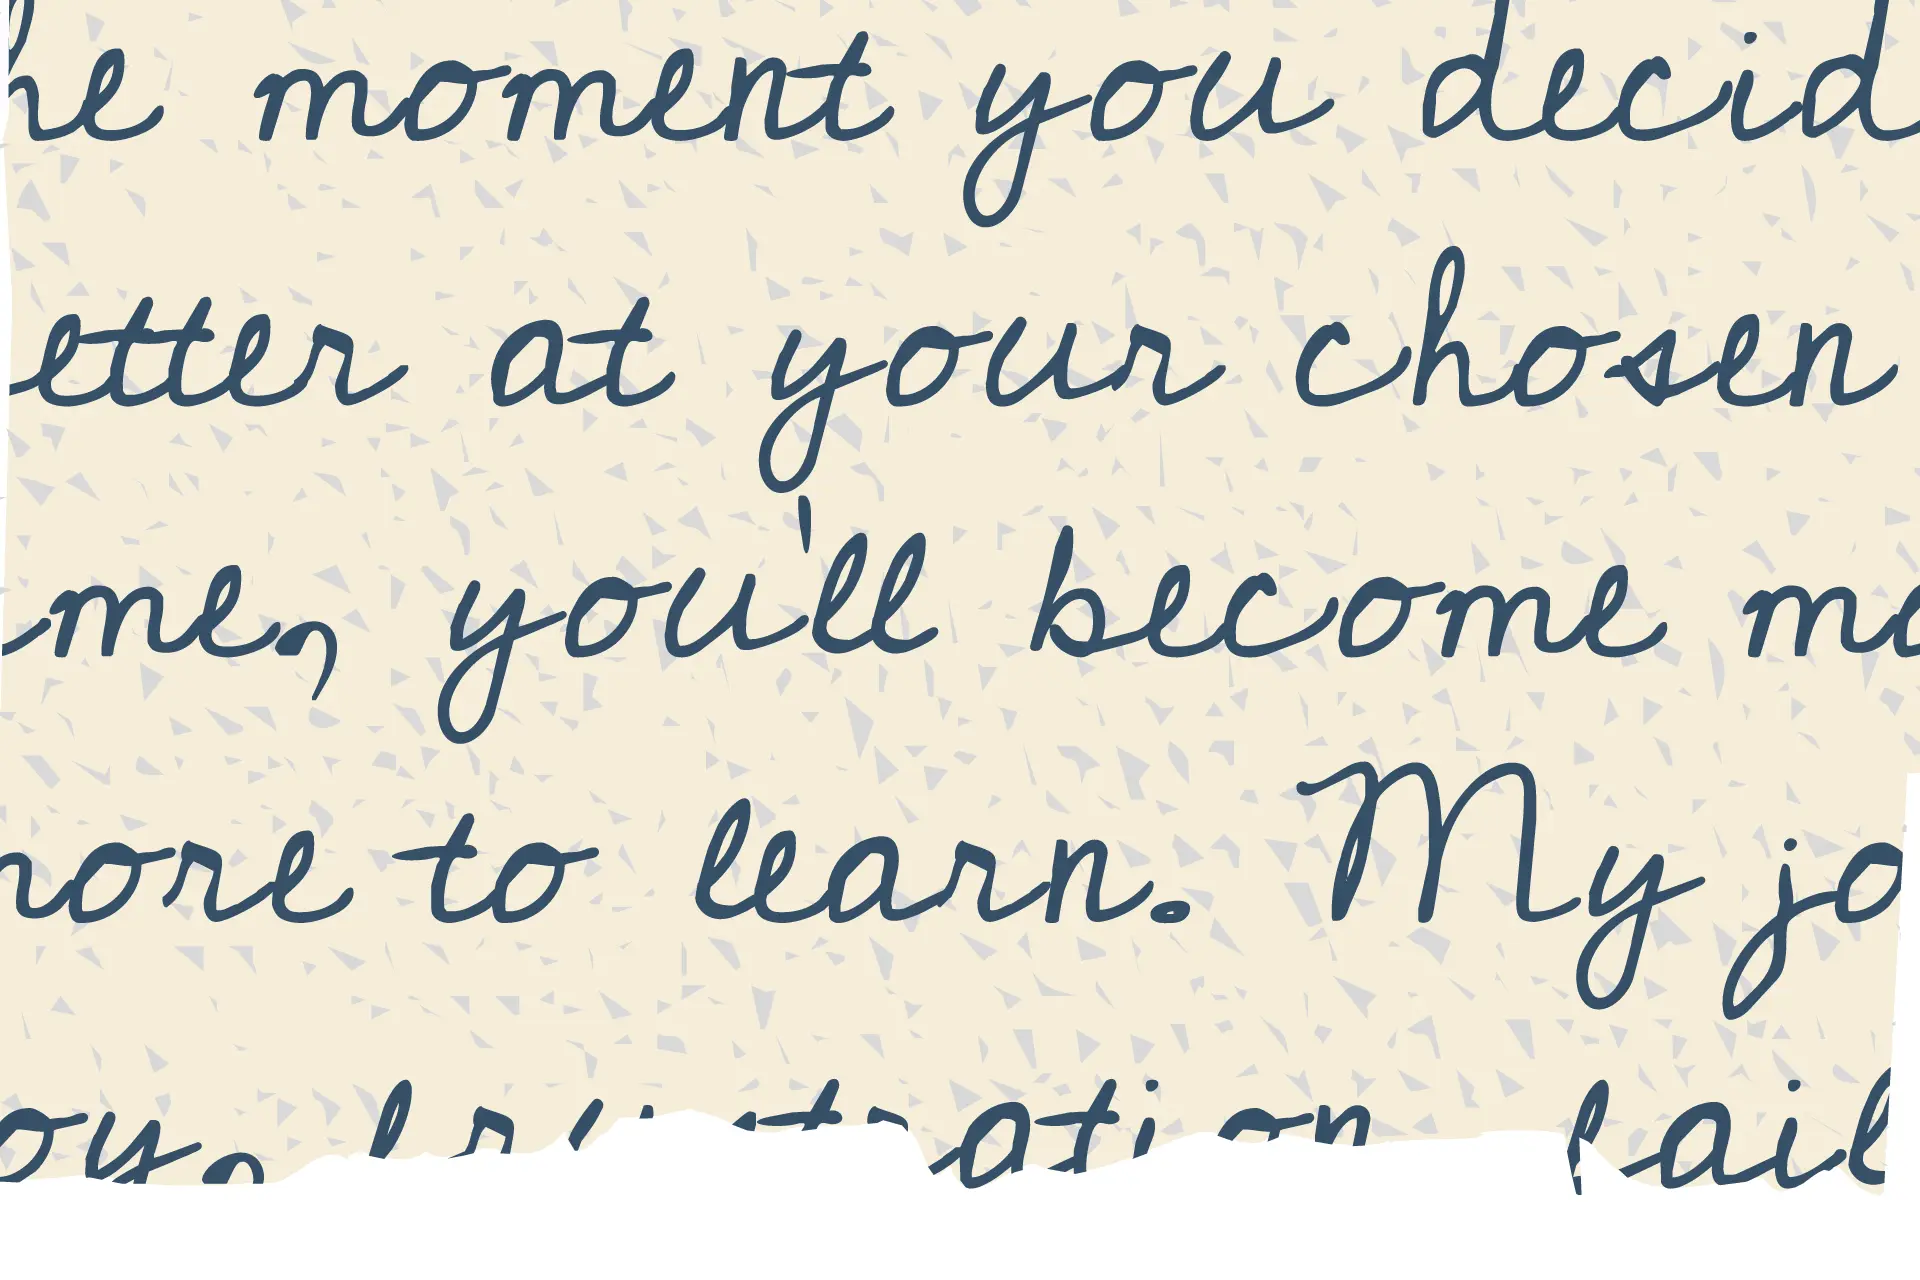 he moment you decid
etter at your chosen
me, you'll become mo
more to learn. My jo
oy, frustration, fail